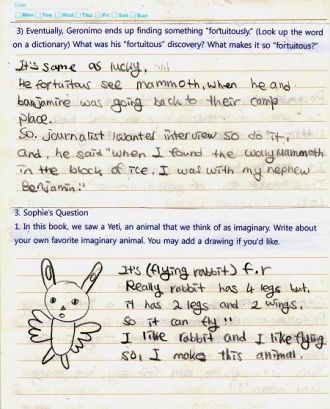 Date
Mon Tue Wed Thu Fri Sat Sun
3) Eventually, Geronimo ends up finding something "fortuitously." (Look up the word
on a dictionary) What was his "fortuitous" discovery? What makes it so "fortuitous?"
It's same as lucky, and
He fortuitous see mammoth, when he and
banjamine was going back to their camp
place.
So. Journalist wanted interview so do it,
and, he said "when I found the wolly Mammoth
in the block of ice, I was with my nephew
Benjamin."
3. Sophie's Question
1. In this book, we saw a Yeti, an animal that we think of as imaginary. Write about
your own favorite imaginary animal. You may add a drawing if you'd like.
It's (flying rabbit) f.r
Really rabbit has 4 legs but,
it has 2 legs and 2 wings,
so it can fly!!
I like rabbit and I like flying
so, I make this animal.